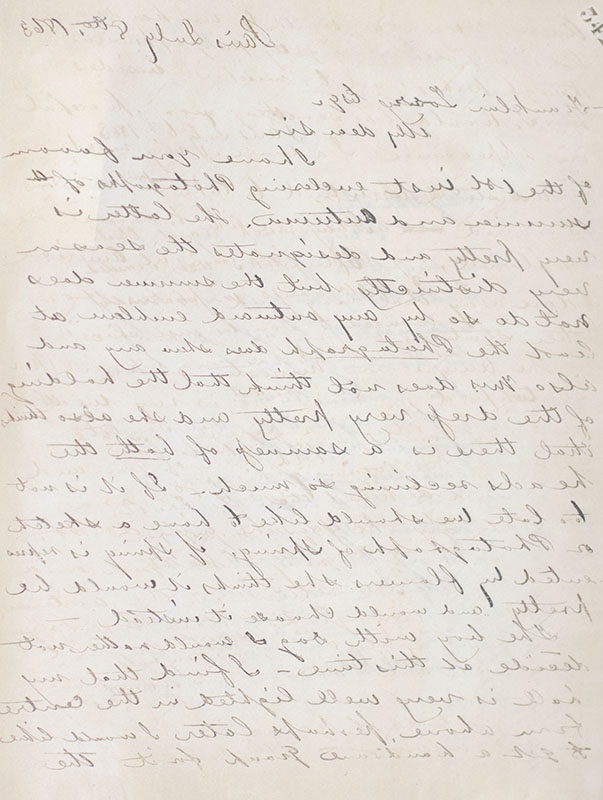 Paris July 8th, 1863
Franklin Torrey Esqr
My dear Sir
I have your favour
of the 1st inst enclosing Photographs of
summer and Autumn. The latter is
very pretty and designates the season
very distinctly but the summer does
not do so by any outward emblem at
least the Photograph does show any and
also Mrs does not think that the holding
of the dress very pretty and she also thinks
that there is a sameness of both the
heads reclining so much. If it is not
to late we should like to have a sketch
or Photograph of spring, if spring is repre
sented by flowers she thinks it would be
pretty and would choose it instead —
The boy with dog I would rather not
decide at this time — I find that my
hall is very well lighted in the centre
from above, perhaps later I would like
to get a handsome Group for it the